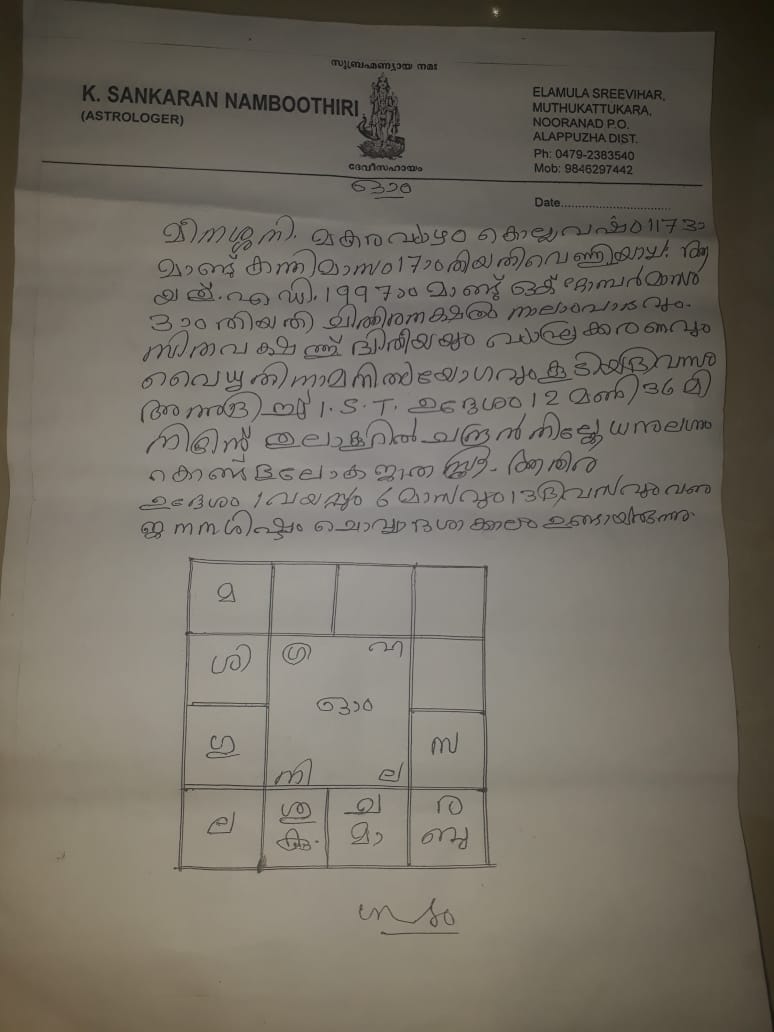 സുബ്രഹ്മണ്യായ നമഃ
K. SANKARAN NAMBOOTHIRI
(ASTROLOGER)
ദേവീസഹായം
ELAMULA SREEVIHAR,
MUTHUKATTUKARA,
NOORANAD P.O.
ALAPPUZHA DIST.
Ph: 0479-2383540
Mob: 9846297442
Date..............................
ഓം
മീനശ്ശനി. മകരവ്യാഴം കൊല്ലവർഷം 1173ാ
മാണ്ട് കന്നിമാസം 17ാംതിയതി വെള്ളിയാഴ്ച.
എ.ഡി. 1997ാം മാണ്ട് ഒക്ടോബർമാസം
3ാം തിയതി ചിത്തിരനക്ഷത്രം നാലാംപാദവും.
സിതപക്ഷത്ത് ദ്വിതീയയും കരണവും
വൈധൃതിനാമനിത്യയോഗവും കൂടിയദിവസം
I.S.T. ഉദ്ദേശം 12 മണി 36 മി
തുലാക്കൂറിൽ ചന്ദ്രൻ നില്ക്കേ ധനുലഗ്നം
കൊണ്ട്
ഉദ്ദേശം 1 വയസ്സും 6 മാസവും 13 ദിവസവും
ജനനശിഷ്ടം ചൊവ്വാദശാക്കാലം ഉണ്ടായിരുന്നു.
മ
ശി ഗ്ര ഹ
ഓം
ഗു സ
നി ല
ല ശു ച ര
കു മാ ബു